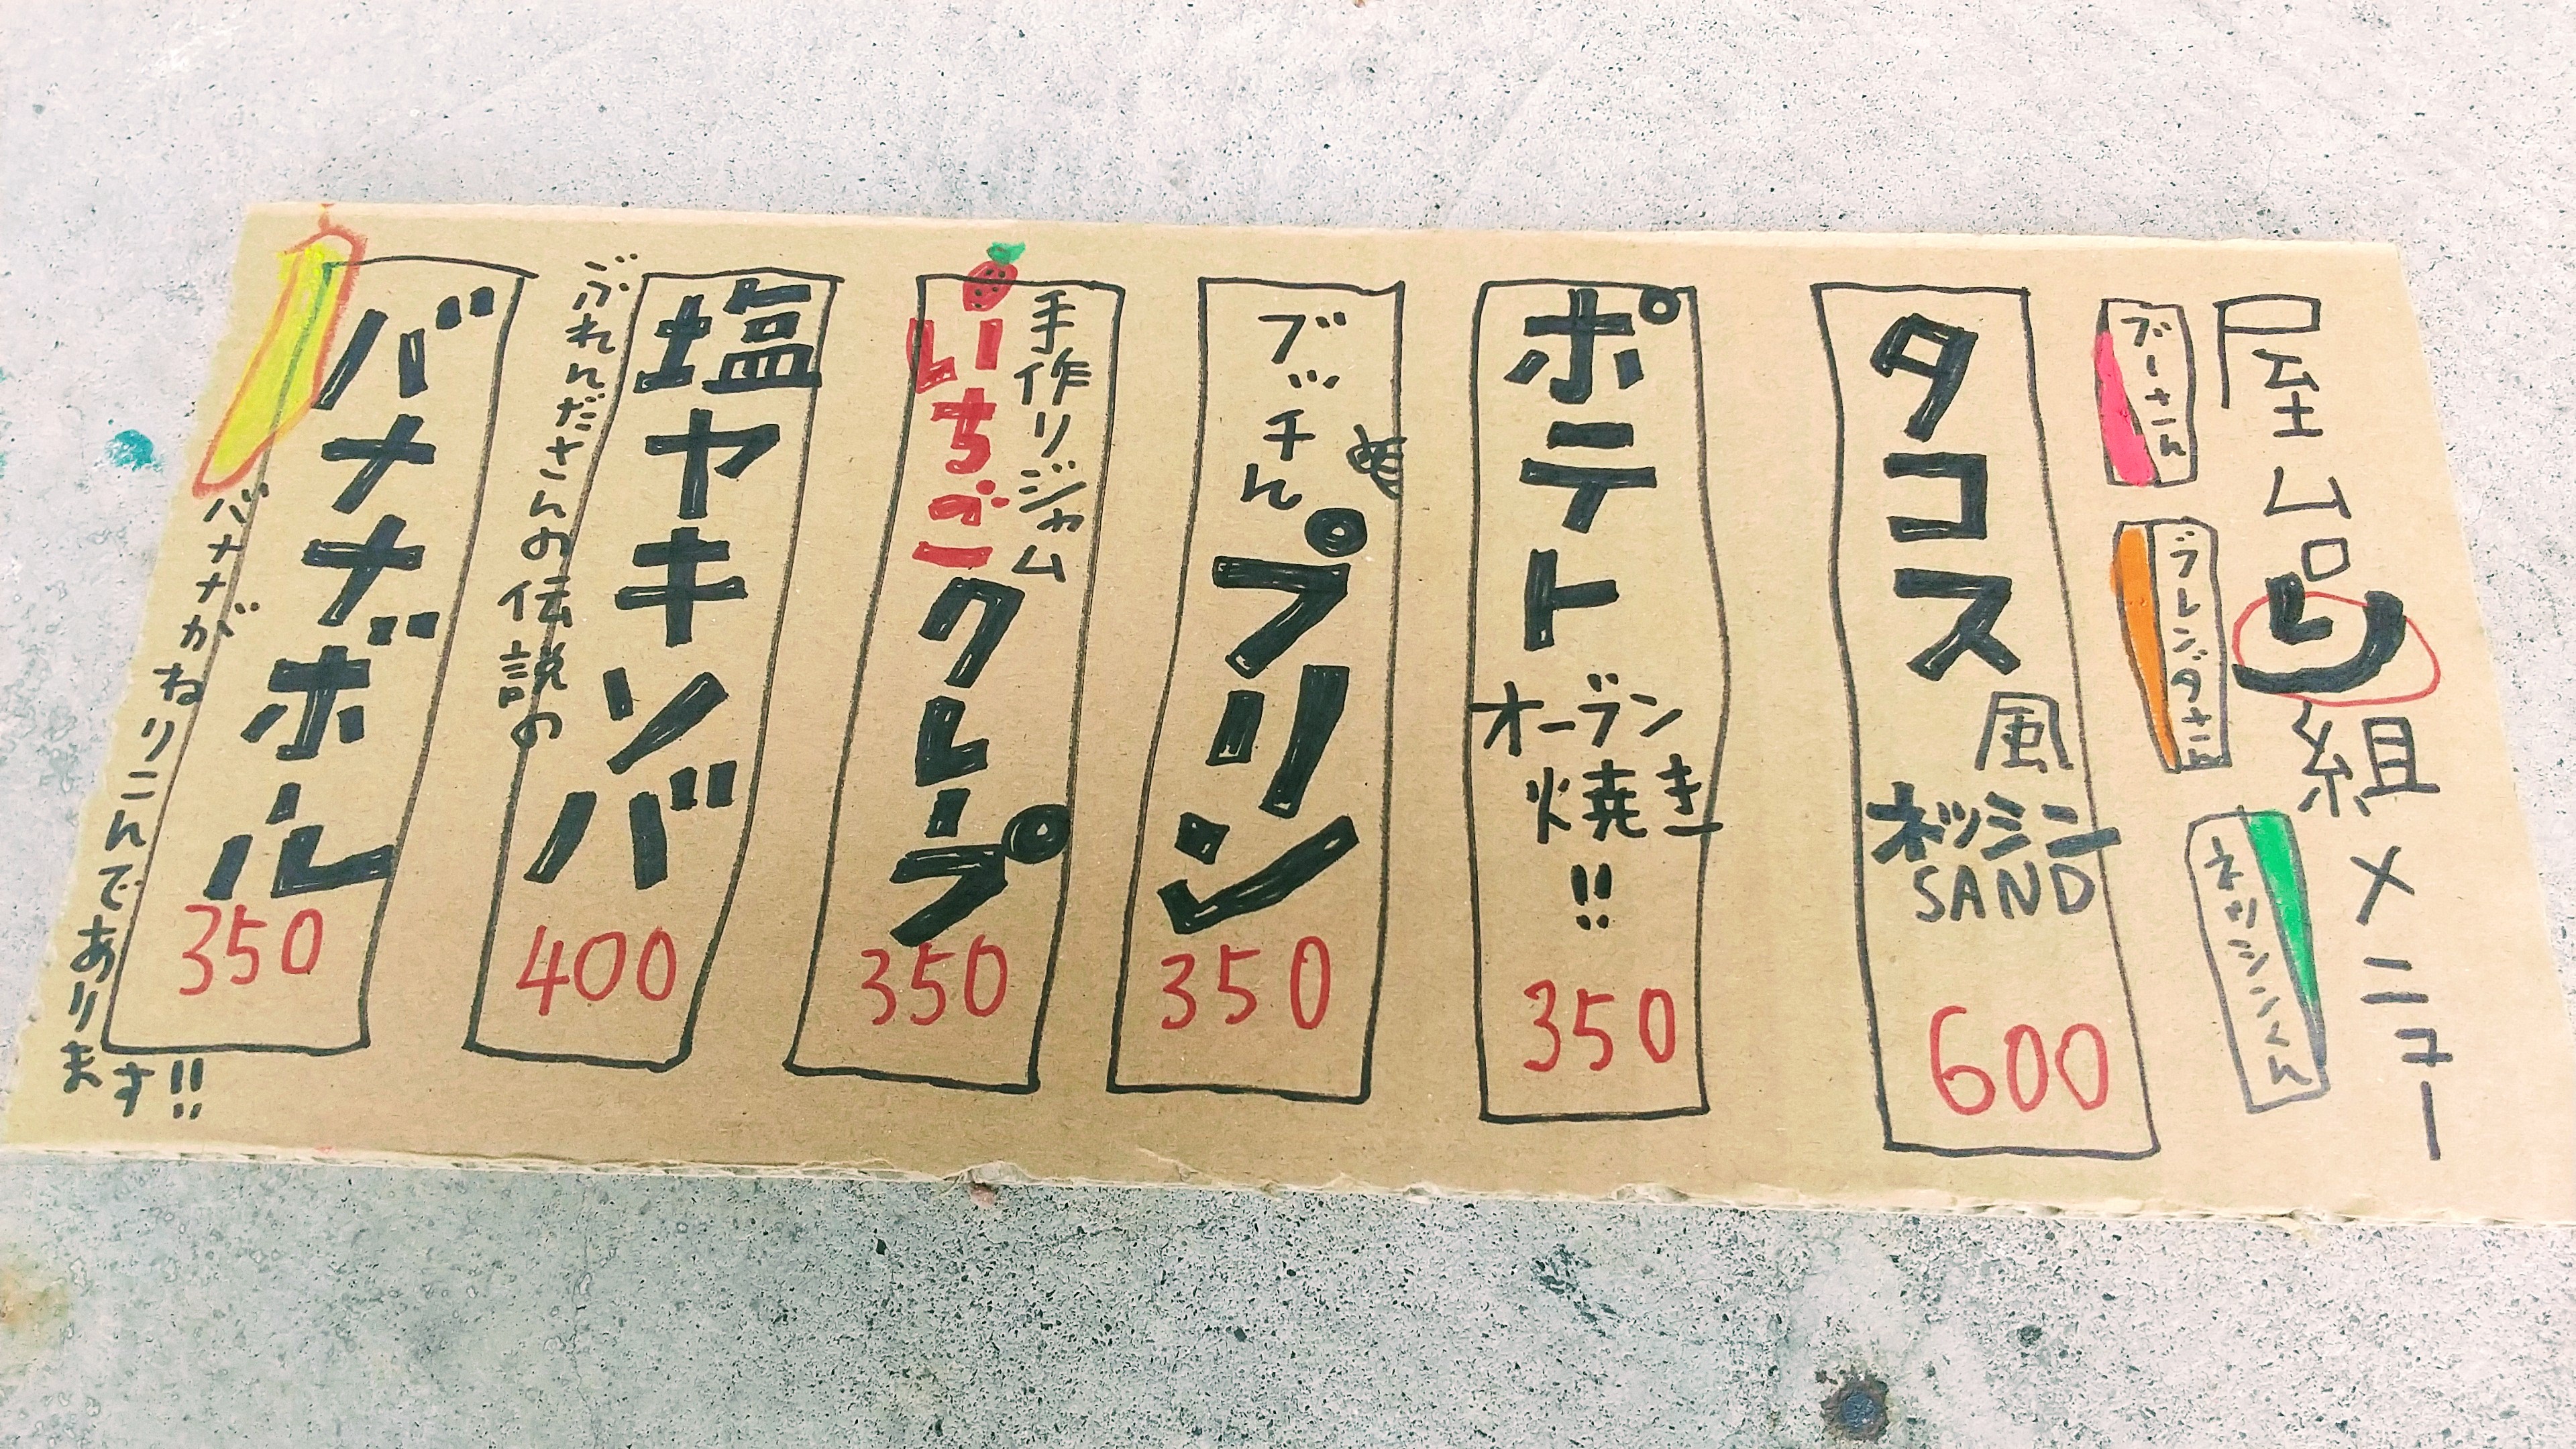 屋台い組メニュー
ブーさん
ブレンダさん
ネッシンくん
タコス風
ネッシン
SAND
600
ポテト
オーブン
焼き
!!
350
ブッチん
プリン
350
手作りジャム
いちごークレープ
350
塩ヤキソバ
400
ぶれんださんの伝説の
バナナボール
350
バナナがねりこんであります!!